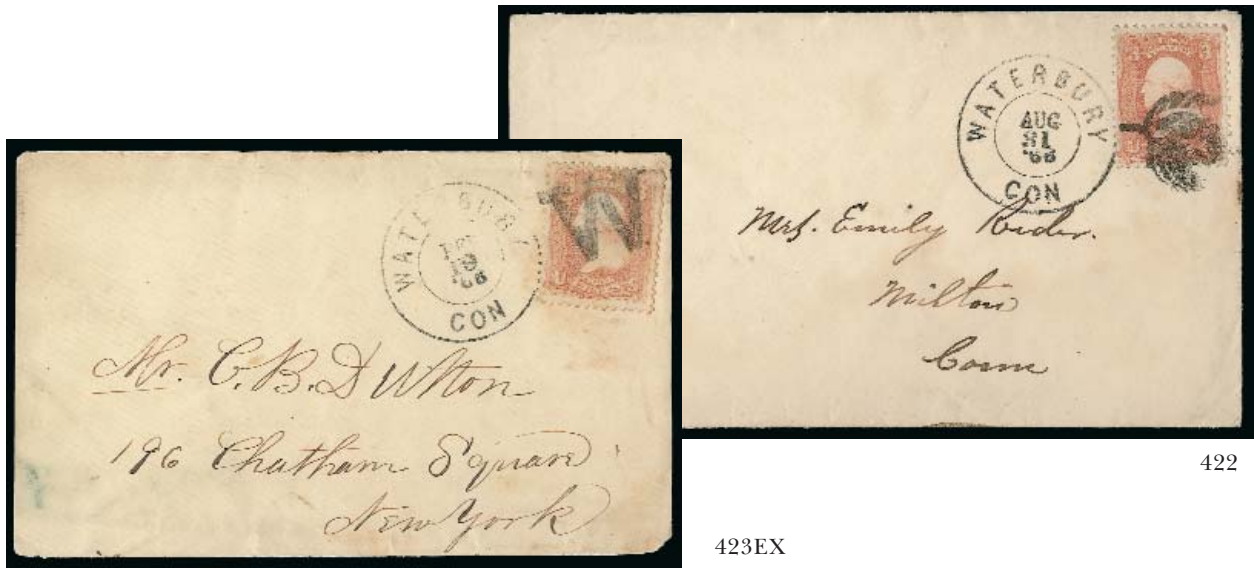 WATERBURY
AUG
31
'66
CON
Mrs. Emily Rider.
Milton
Conn
422
WATERBURY
CON
W
Mr. C. B. Dutton
196 Chatham Square
New York
423EX